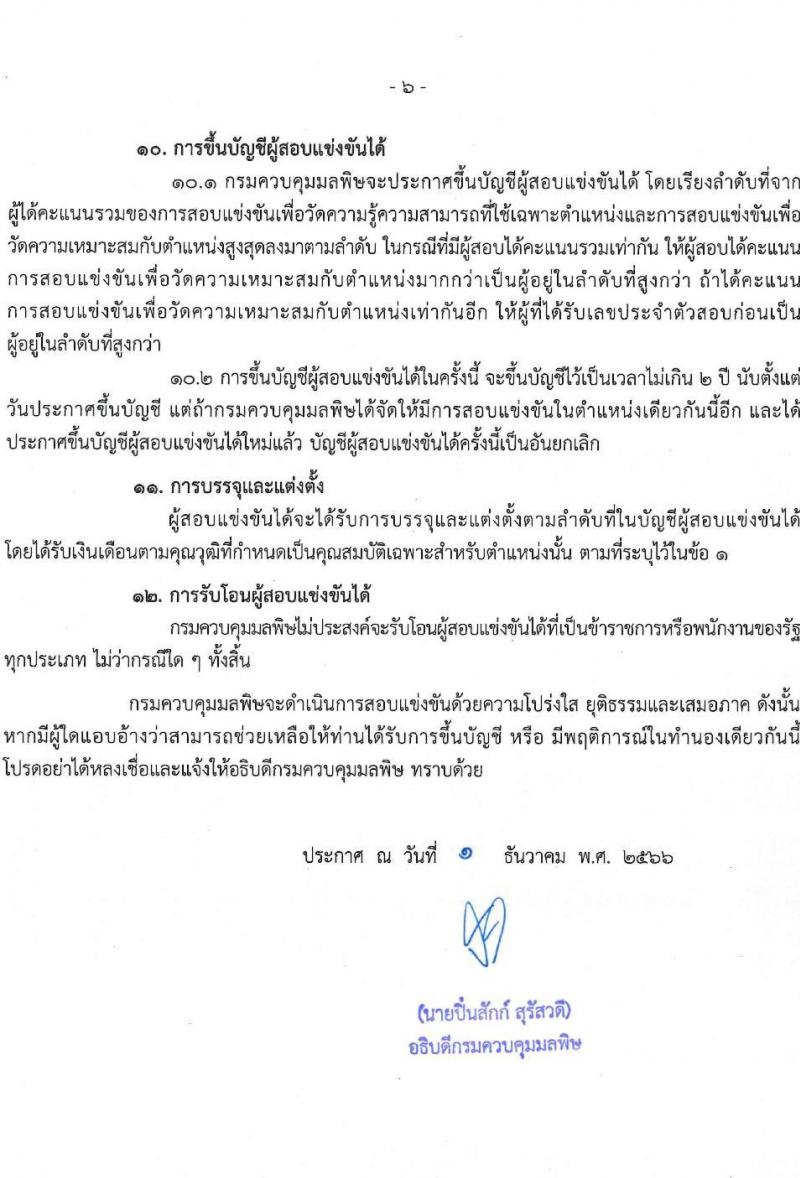 - ๖ -
๑๐. การขึ้นบัญชีผู้สอบแข่งขันได้
๑๐.๑ กรมควบคุมมลพิษจะประกาศขึ้นบัญชีผู้สอบแข่งขันได้ โดยเรียงลำดับที่จาก
ผู้ได้คะแนนรวมของการสอบแข่งขันเพื่อวัดความรู้ความสามารถที่ใช้เฉพาะตำแหน่งและการสอบแข่งขันเพื่อ
วัดความเหมาะสมกับตำแหน่งสูงสุดลงมาตามลำดับ ในกรณีที่มีผู้สอบได้คะแนนรวมเท่ากัน ให้ผู้สอบได้คะแนน
การสอบแข่งขันเพื่อวัดความเหมาะสมกับตำแหน่งมากกว่าเป็นผู้อยู่ในลำดับที่สูงกว่า ถ้าได้คะแนน
การสอบแข่งขันเพื่อวัดความเหมาะสมกับตำแหน่งเท่ากันอีก ให้ผู้ที่ได้รับเลขประจำตัวสอบก่อนเป็น
ผู้อยู่ในลำดับที่สูงกว่า
๑๐.๒ การขึ้นบัญชีผู้สอบแข่งขันได้ในครั้งนี้ จะขึ้นบัญชีไว้เป็นเวลาไม่เกิน ๒ ปี นับตั้งแต่
วันประกาศขึ้นบัญชี แต่ถ้ากรมควบคุมมลพิษได้จัดให้มีการสอบแข่งขันในตำแหน่งเดียวกันนี้อีก และได้
ประกาศขึ้นบัญชีผู้สอบแข่งขันได้ใหม่แล้ว บัญชีผู้สอบแข่งขันได้ครั้งนี้เป็นอันยกเลิก
๑๑. การบรรจุและแต่งตั้ง
ผู้สอบแข่งขันได้จะได้รับการบรรจุและแต่งตั้งตามลำดับที่ในบัญชีผู้สอบแข่งขันได้
โดยได้รับเงินเดือนตามคุณวุฒิที่กำหนดเป็นคุณสมบัติเฉพาะสำหรับตำแหน่งนั้น ตามที่ระบุไว้ในข้อ ๑
๑๒. การรับโอนผู้สอบแข่งขันได้
กรมควบคุมมลพิษไม่ประสงค์จะรับโอนผู้สอบแข่งขันได้ที่เป็นข้าราชการหรือพนักงานของรัฐ
ทุกประเภท ไม่ว่ากรณีใด ๆ ทั้งสิ้น
กรมควบคุมมลพิษจะดำเนินการสอบแข่งขันด้วยความโปร่งใส ยุติธรรมและเสมอภาค ดังนั้น
หากมีผู้ใดแอบอ้างว่าสามารถช่วยเหลือให้ท่านได้รับการขึ้นบัญชี หรือ มีพฤติการณ์ในทำนองเดียวกันนี้
โปรดอย่าได้หลงเชื่อและแจ้งให้อธิบดีกรมควบคุมมลพิษ ทราบด้วย
ประกาศ ณ วันที่ ๑ ธันวาคม พ.ศ. ๒๕๖๖
(นายปิ่นสักก์ สุรัสวดี)
อธิบดีกรมควบคุมมลพิษ